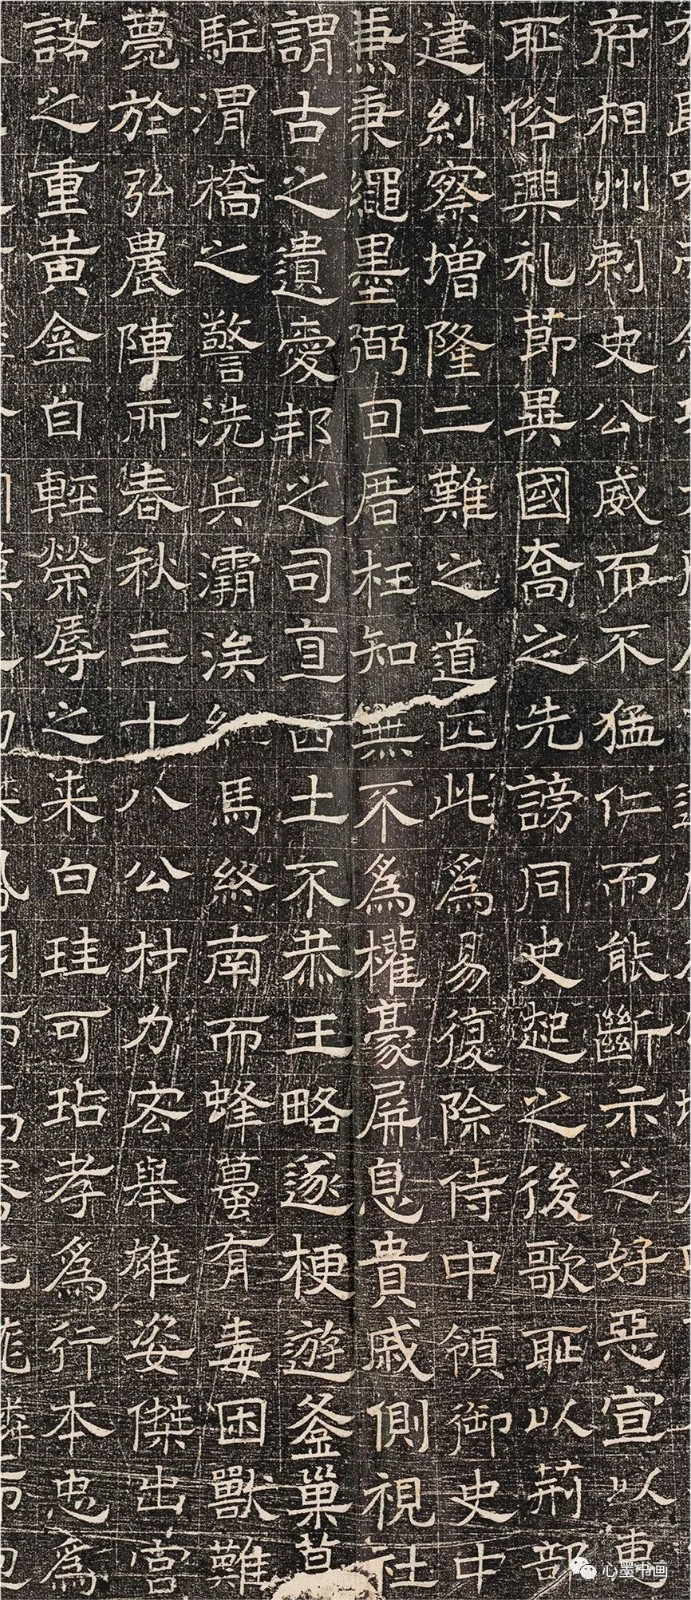 府相州刺史公威而不猛仁而能斷示之好惡宣以
耻俗興礼節異國喬之先謗同史起之後歌耻以荊部
建糾察增隆二難之道匹此爲易復除侍中領御史中
秉繩墨弼回厝枉知無不爲權豪屏息貴戚側視社
謂古之遺愛邦之司直西土不恭王略遂梗遊釜巢苕
駈渭橋之警洗兵灞涘馬終南而蜂蠆有毒困獸難
薨於弘農陣所春秋三十八公材力宏舉雄姿傑出
諾之重黄金自輕榮辱之来白珪可玷孝爲行本忠爲
心墨书画